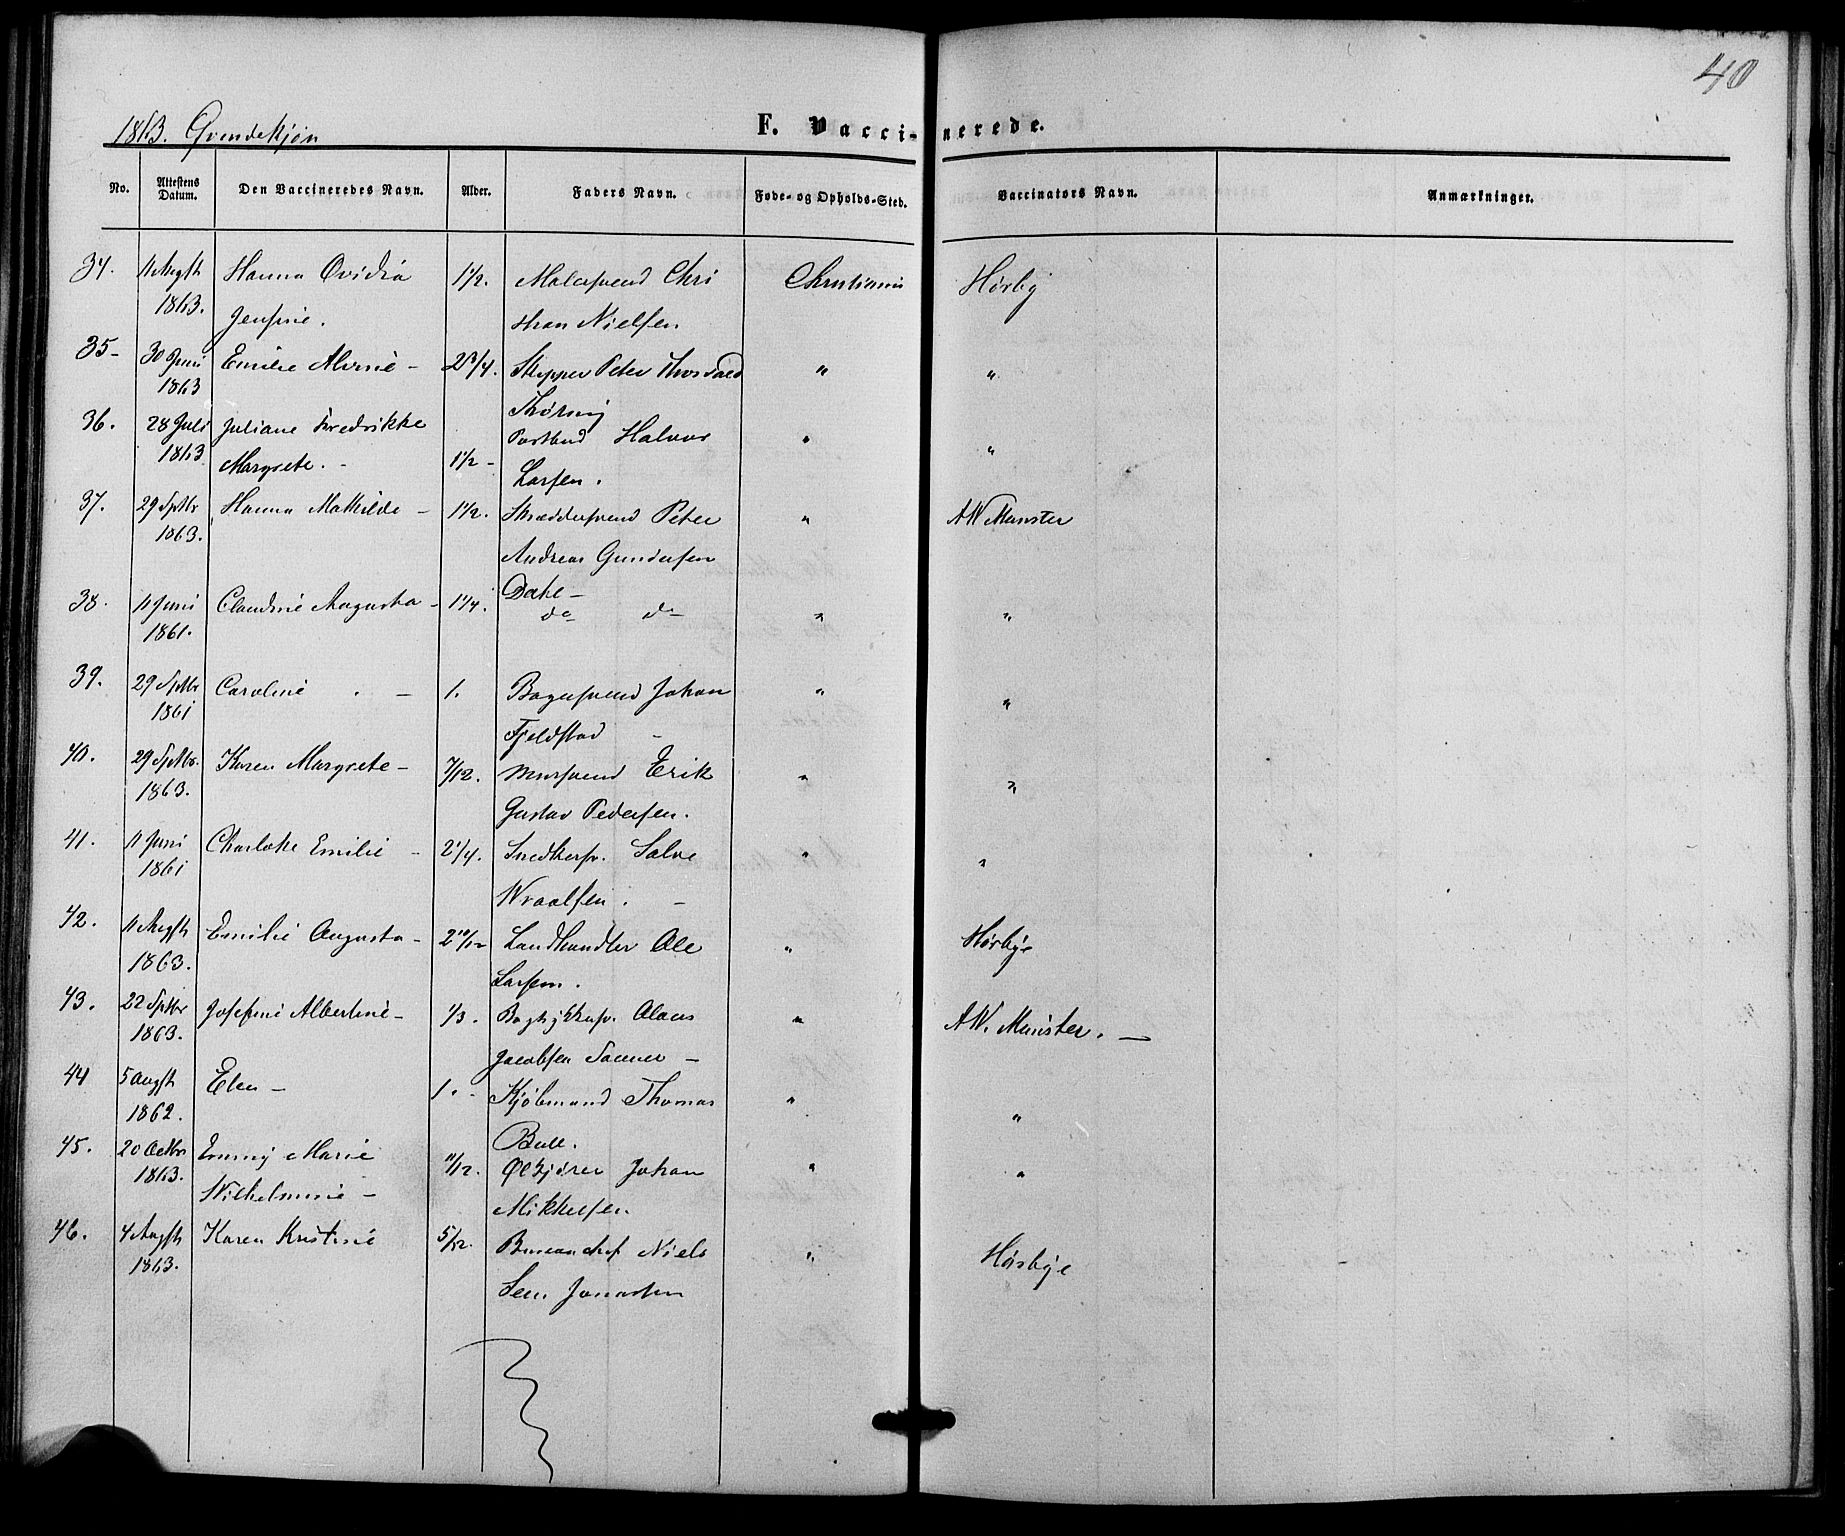 40
1863. Qvindekjøn
F. Vaccinerede.
No. Attestens Datum. Den Vaccineredes Navn. Alder. Faders Navn. Føde- og Opholds-Sted. Vaccinators Navn. Anmærkninger.
34. 11 Augst 1863. Hanna Ovidia 1 1/2. Malersvend Chri Christiania Hørby
Jensine. stian Nielsen
35- 30 Juni 1863 Emilie Alvine - 2 3/4. Skipper Peter Thorvald " "
Thørning
36. 28 Juli 1863 Juliane Fredrikke Postbud Halvor " "
Margrete. - 1 1/2 - Larsen.
37. 29 Sptbr 1863. Hanna Mathilde - 1 1/2. Skræddersvend Peter " AW Munster
Andreas Gundersen
38. 11 Juni 1861. Claudine Augusta - 1 1/4. do do " "
39. 29 Sptbr 1861 Caroline - 1. Bagersvend Johan " "
Fjeldstad -
40. 29 Sptbr. 1863. Karen Margrete - 7/12. Mursvend Erik " "
Gustav Pedersen.
41. 11 Juni 1861 Charlotte Emilie - 2 1/4. Snedkersv. Salve " "
Wraalsen. -
42. 11 Augst 1863. Emilie Augusta - 2 10/12 Landhandler Ole " Hørbye
Larsen.
43. 22 Sptbr 1863. Josefine Albertine - 1/3. Olaus " AW. Munster. -
Jacobsen -
44 5 Augst 1862. Elen - 1. - Kjøbmand Thomas " "
Bull.
45. 20 Octbr 1863. Emmy Marie 11/12. Ølkjører Johan " "
Wilhelmine - Mikkelsen.
46. 4 Augst 1863. Karen Kristine 5/12. Bureauchef Niels " Hørbye
Sem